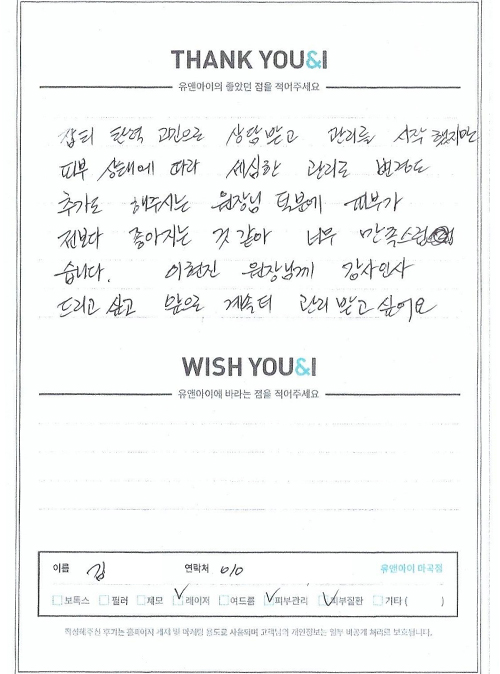 THANK YOU&I
유앤아이의 좋았던 점을 적어주세요
잡티 탄력 고민으로 상담받고 관리를 시작 했지만
피부 상태에 따라 세심한 관리로 변경도
추가도 해주시는 원장님 덕분에 피부가
전보다 좋아지는 것 같아 너무 만족스럽
습니다. 이현진 원장님께 감사인사
드리고 싶고 앞으로 계속 더 관리 받고 싶어요
WISH YOU&I
유앤아이에 바라는 점을 적어주세요
이름 김 연락처 010 유앤아이 마곡점
보톡스 필러 제모 레이저 여드름 피부관리 피부질환 기타 ( )
작성해주신 후기는 홈페이지 게재 및 마케팅 용도로 사용되며 고객님의 개인정보는 일부 비공개 처리로 보호됩니다.